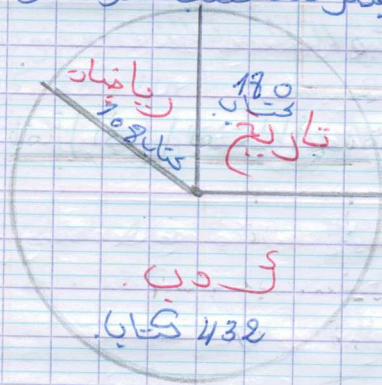 رياضيات
108 كتاب
180
كتاب
تاريخ
أدب.
432 كتابا.